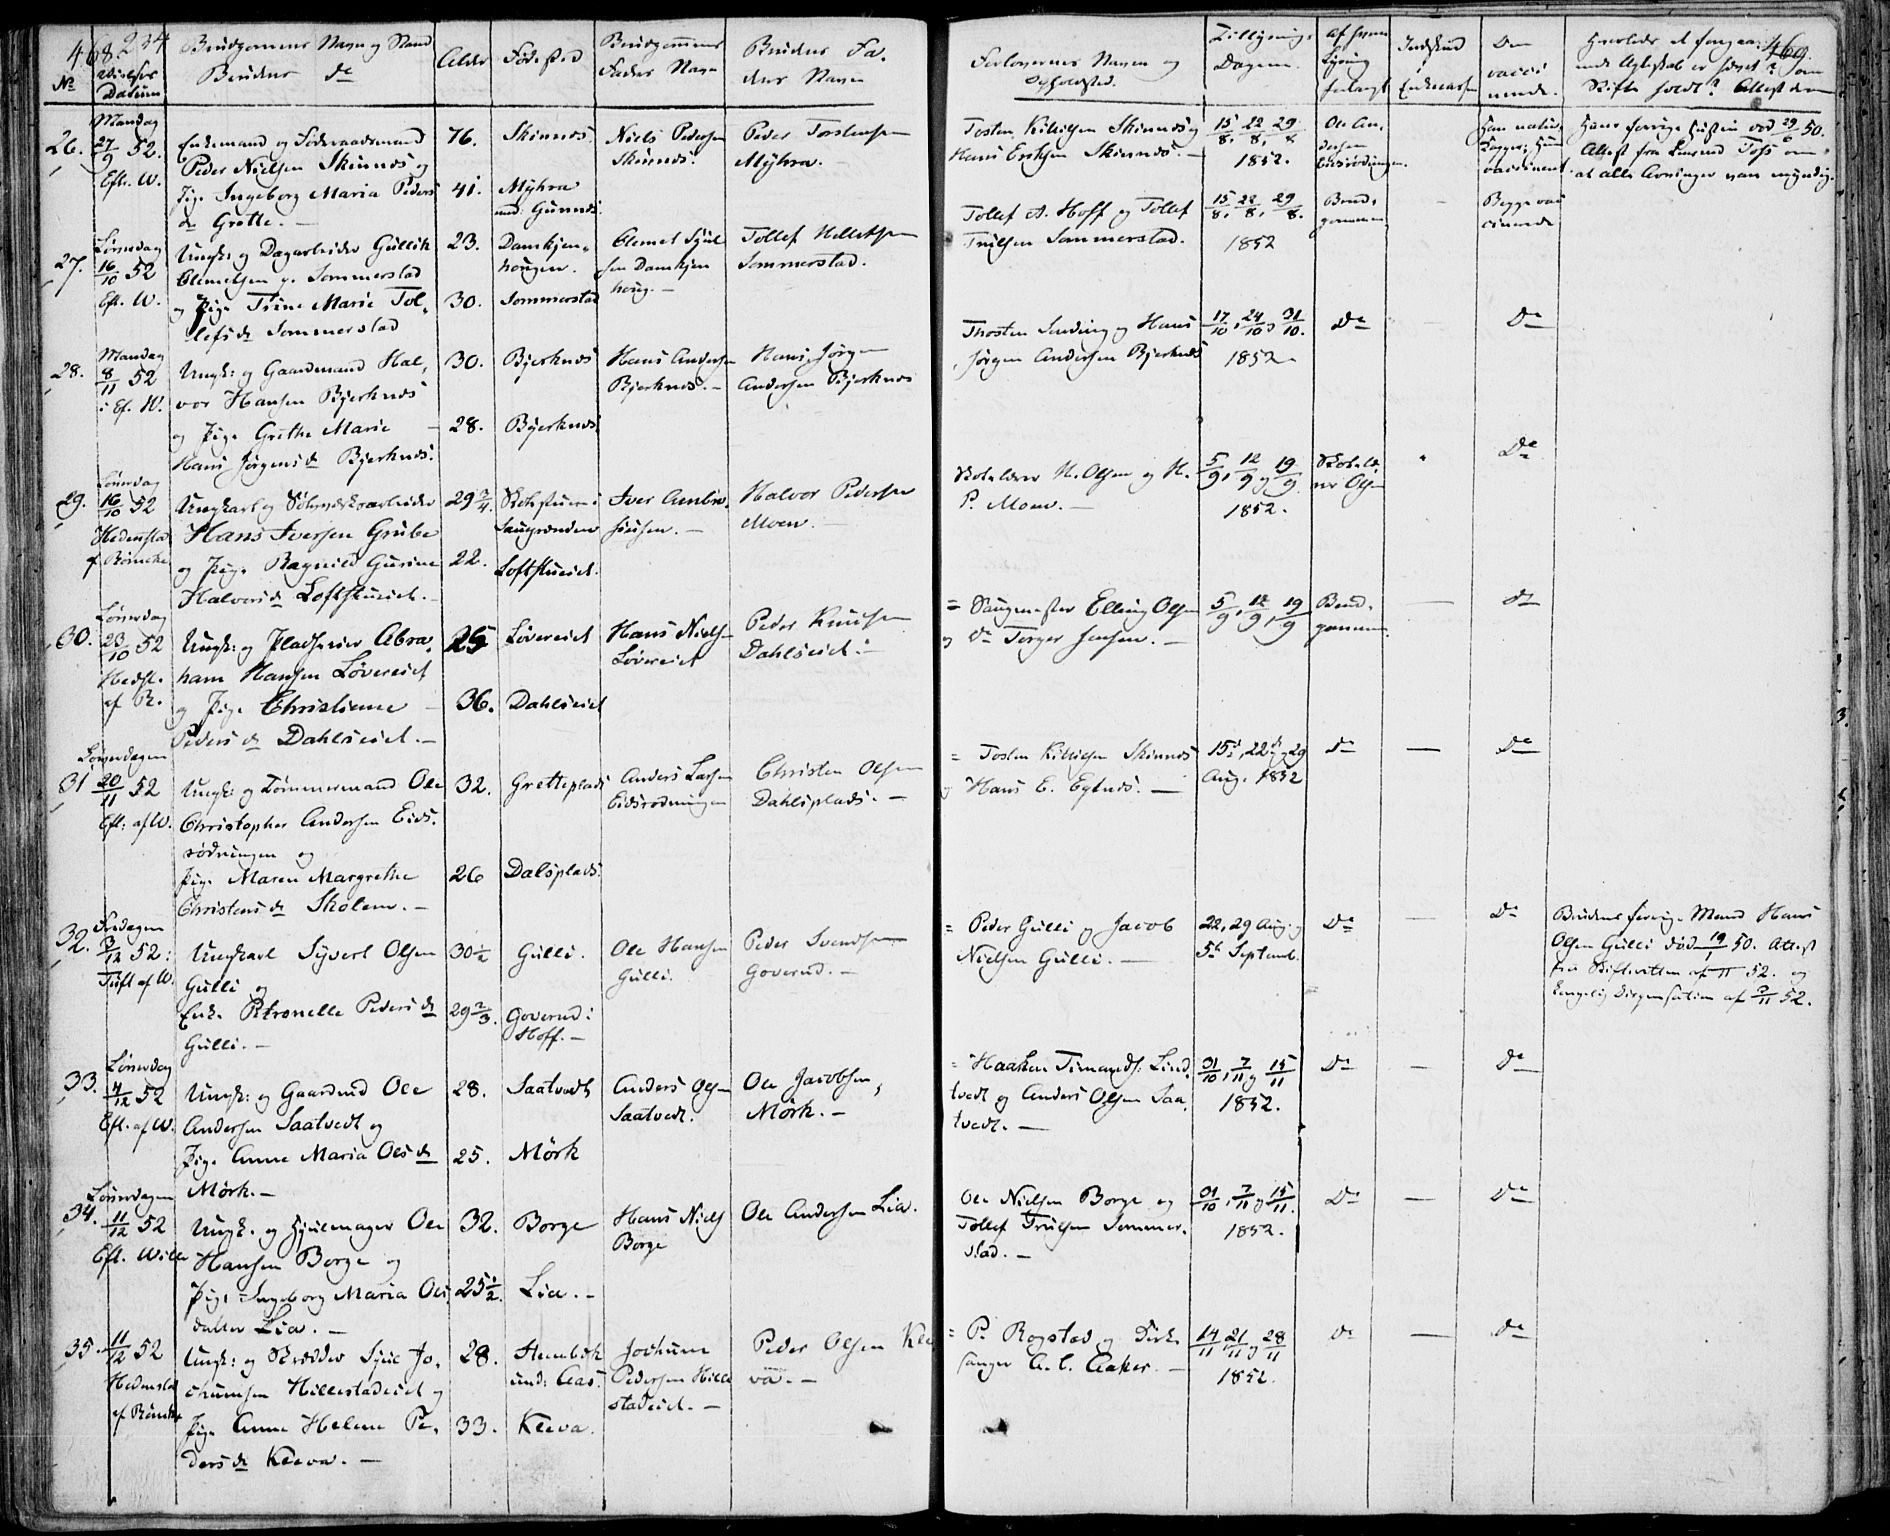 468. 234
No
Vielses
Datum
Brudgommens Navn og Stand
Brudens do
Alder
Fødested
Brudgommens
Faders Navn
Brudens Fa-
ders Navn
26.
Mandag
27/9 52.
Eft. W.
Enkemand og Føderaadsmand
Peder Nielsen Skinnes og
Pige Ingeborg Maria Peders
dr Grette. —
76.
41.
Skinnes.
Myhra
und: Gunnes.
Niels Pedersen
Skinnes.
Peder Torstensen
Myhra. —
27.
Lørverdag
16/10 52
Eft. W.
Ungk: og Dagarbeider Gullik
Clemetsen p. Sommerstad
og Pige Trine Marie Tol-
lefsdr Sommerstad
23.
30.
Damkjen-
hougen.
Sommerstad
Clemet Syver
sen Damkjen
houg. —
Tollef
Sommerstad.
28.
Mandag
8/11 52
i Ef. W.
Ungk: og Gaardmand Hal-
vor Hansen Bjerknes
og Pige Grethe Marie —
Hans Jørgensdr Bjerknes.
30.
28.
Bjerknes
Bjerknes.
Hans Andersen
Bjerknes. —
Hans Jørgen
Andersen Bjerknes
29.
Løverdag
16/10 52
Hedenstad
af Römcke
Ungkarl og Sølvverksarbeider
Hans Iversen Grube
og Pige Ragnild Gurine
Halvorsdr Loftstueiet. —
29 3/4.
22.
Saugrenden
Loftstueiet.
Iver Ambro-
siusen. —
Halvor Pedersen
Moen. —
30.
Løverdag
23/10 52
Hedst.
af R.
Ungk: og Pladseier Abra-
ham Hansen Løvereiet
og Pige Christiane —
Pedersdr Dahlseiet. —
25
36.
Løvereiet
Dahlseiet
Hans Niels-
Løvereiet
Peder Knusen
Dahlseiet. —
31
Løverdagen
20/11 52
Eft: af W.
Ungk: og Tømmermand Ole
Christopher Andersen Eids-
rødningen og
Pige Maren Margrethe
Christensdr Skolem. —
32.
26
Gretteplads
Dalsplads.
Anders Larsen
Eidsrødningen
Christen Olsen
Dahlsplads. —
32.
Fredagen
3/12 52:
Tuft af W.
Ungkarl Syvert Olsen
Gulli og
Enke Petronelle Pedersdr
Gulli. —
30 1/2
29 2/3.
Gulli.
Goverud i
Hoff. —
Ole Hansen
Gulli.
Peder Svendsen
Goverud. —
33.
Løverdag
4/12 52
Eft. af W.
Ungk: og Gaardmd Ole
Andersen Saatvedt og
Pige Anne Maria Olsdr
Mörk. —
28.
25.
Saatvedt
Mörk
Anders Ols-
Saatvedt.
Ole Jacobsen,
Mörk. —
34.
Løverdagen
11/12 52
Eft. Wille
Ungk: og Hjulmager Ole
Hansen Borge og
Pige Ingeborg Maria Ols
datter Lia. —
32.
25 1/2.
Borge
Lia. —
Hans Niels
Borge
Ole Andersen Lia.
35.
11/12 52
Hedenstad
af Römcke
Ungk: og Skredder Syver Jo-
chumsen Hillestadeiet og
Pige Anne Helene Pe-
dersdr Kleva. —
28.
33.
Stenbek
und: Aas.
Kleva.
Jochum
Pedersen Hille
stadeiet. —
Peder Olsen Kle
va. —
469.
Forlovernes Navn og
Opholdssted.
Tillysnings-
Dagene.
Af hvem
Lysning
forlangt
Indskud
Enkecassen
Om
vacci
nerede.
Hvorledes et foregaa-
ende Ægteskab er hævet? om
Skifte holdt? Attest derom
Tosten Kittilsen Skinnes og
Hans Eriksen Skinnes. —
15/8, 22/8, 29/8
1852.
Ole An-
dersen
Eidsrødningen.
Han natur.
Kopper; hun
vaccineret.
Hans forrige hustru død 29/6 50.
Attest fra Lensmd Foss om
at alle Arvinger vare myndig.
Tollef A. Hoff og Tollef
Trulsen Sommerstad.
15/8, 22/8, 29/8.
1852
Brud-
gommen
—
Begge vac
cinerede
Thosten Sending og Hans
Jørgen Andersen Bjerknes
17/10, 24/10, 31/10.
1852 —
Do
—
Do
Skoleholder N. Olsen og H.
P. Moen. —
5/9, 12/9 og 19/9
1852.
Skoleld
er Olsen
Do
= Saugmester Elling Olsen
og Do Torger Jensen. —
5/9, 12/9, 19/9
Brud-
gommen.
—
Do
= Tosten Kittilsen Skinnes
og Hans E. Egtnes. —
15de, 22de og 29
Aug. 1852
Do
—
Do
= Peder Gulli og Jacob
Nielsen Gulli. —
22, 29 Aug. og
5te Septemb.
Do
—
Do
Brudens forrige Mand Hans
Olsen Gulli død 19/1 50. Attest
fra Skifteretten af 52. og
Kongelig Dispensation af 3/11 52.
= Haaken Simonds. Lind-
tvedt og Anders Olsen Saa-
tvedt. —
31/10, 7/11 og 15/11
1852.
Do
—
Do
Ole Nielsen Borge og
Tollef Trulsen Sommer-
stad. —
31/10, 7/11 og 15/11.
1852.
Do
—
Do
= P. Rogstad og Kirke
sanger A. C. Aaker. —
14/11, 21/11 og 28/11
1852.
Do
—
Do